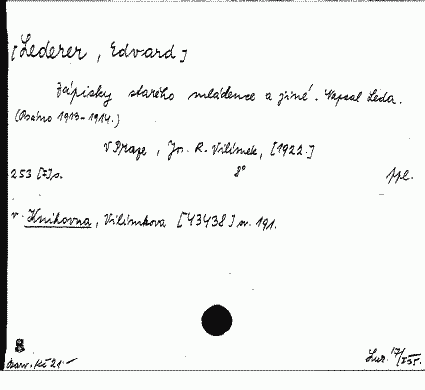 [Lederer, Edvard]
Zápisky starého mládence a jiné. Napsal Leda.
(Psáno 1913-1914.)
V Praze, Jos. R. Vilímek, [1922.]
253 [2] s. 8° ppl.
v. Knihovna, Vilímkova [43438] sv. 191.
Darov. Kč 21.–
17/